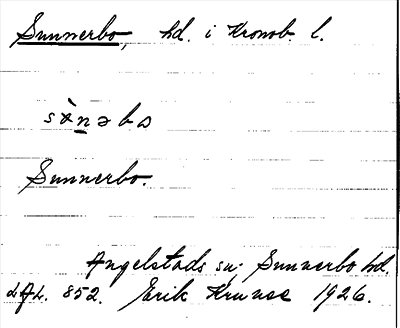 Sunnerbo, hd. i Kronob. l.
sànəbo
Sunnerbo.
Angelstads sn; Sunnerbo hd.
LAL. 852. Erik Krunse 1926.